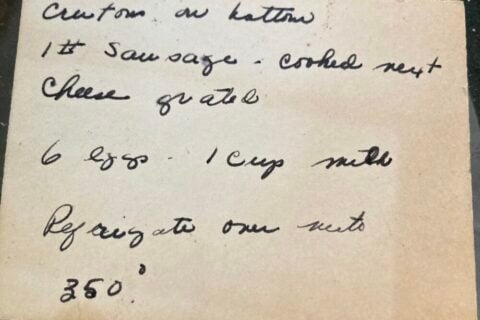 Croutons on bottom
1# Sausage - cooked next
Cheese grated
6 eggs - 1 cup milk
Refrigate over nite
350°